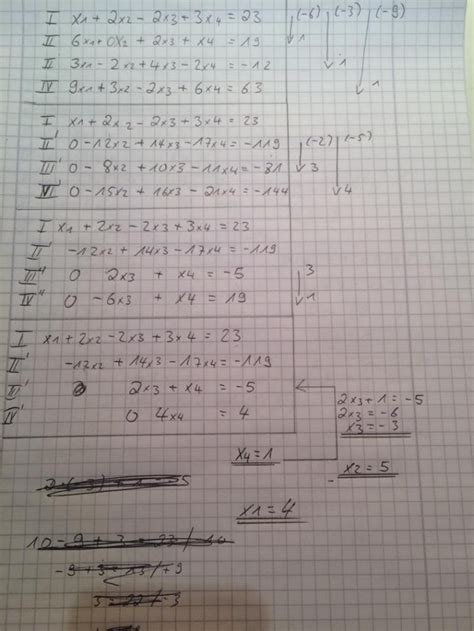 I x1 + 2x2 - 2x3 + 3x4 = 23 (-6) (-3) (-9)
II 6x1 + 0x2 + 2x3 + x4 = 19 1
II 3x1 - 2x2 + 4x3 - 2x4 = -12 1
IV 9x1 + 3x2 - 2x3 + 6x4 = 63 1
I x1 + 2x2 - 2x3 + 3x4 = 23
II' 0 - 12x2 + 14x3 - 17x4 = -119 (-2) (-5)
III' 0 - 8x2 + 10x3 - 11x4 = -81 3
IV' 0 - 15x2 + 16x3 - 21x4 = -144 4
I x1 + 2x2 - 2x3 + 3x4 = 23
II' -12x2 + 14x3 - 17x4 = -119
III" 0 2x3 + x4 = -5 3
IV" 0 -6x3 + x4 = 19 1
I x1 + 2x2 - 2x3 + 3x4 = 23
II' -12x2 + 14x3 - 17x4 = -119
II' 0 2x3 + x4 = -5
IV' 0 4x4 = 4
2x3 + 1 = -5
2x3 = -6
x3 = -3
x4 = 1
x2 = 5
x1 = 4
10 - 9 + 3 = 23 / 10